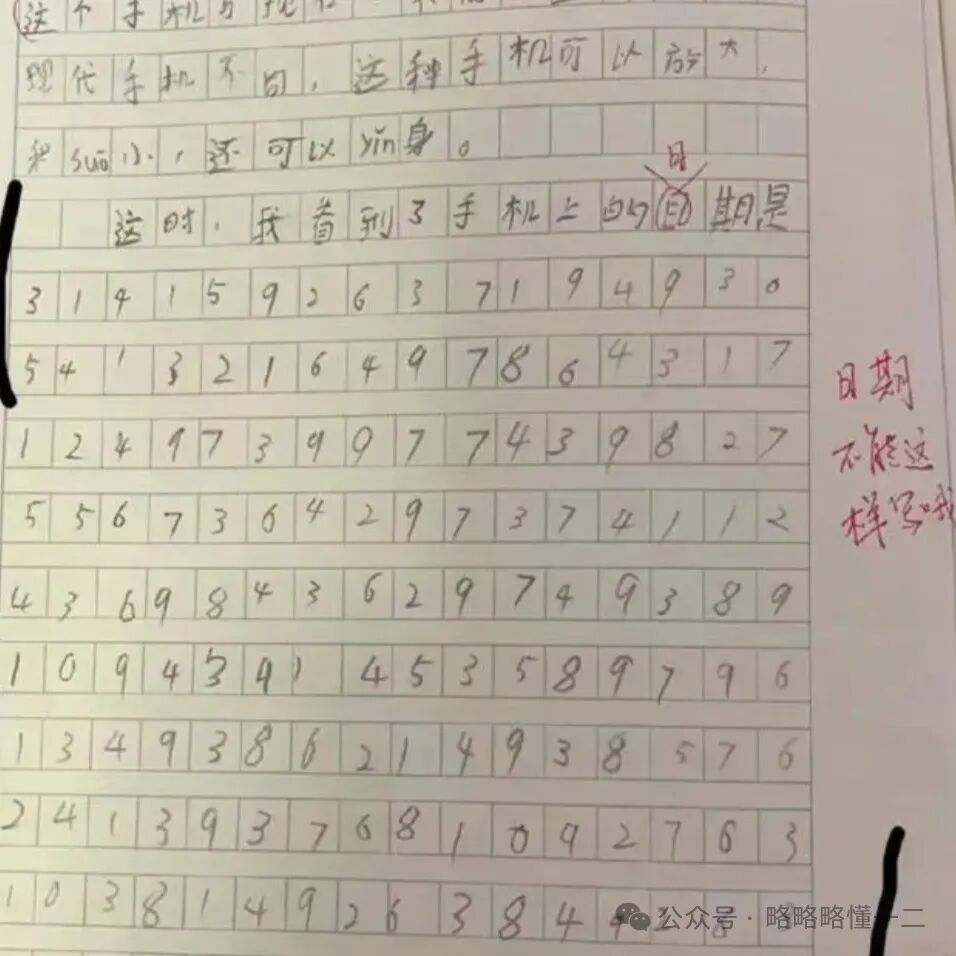 这个手机与现
现代手机不同，这种手机可以放大，
和suō小，还可以yǐn身。
日
这时，我看到了手机上的目期是
3141592637194930
5413216497864317
1249739977439827
5567364297374112
4369843629749389
1094391453589796
1349386214938576
2413937681092763
10381492638442
日期
不能这
样写哦
公众号·略略略懂十二